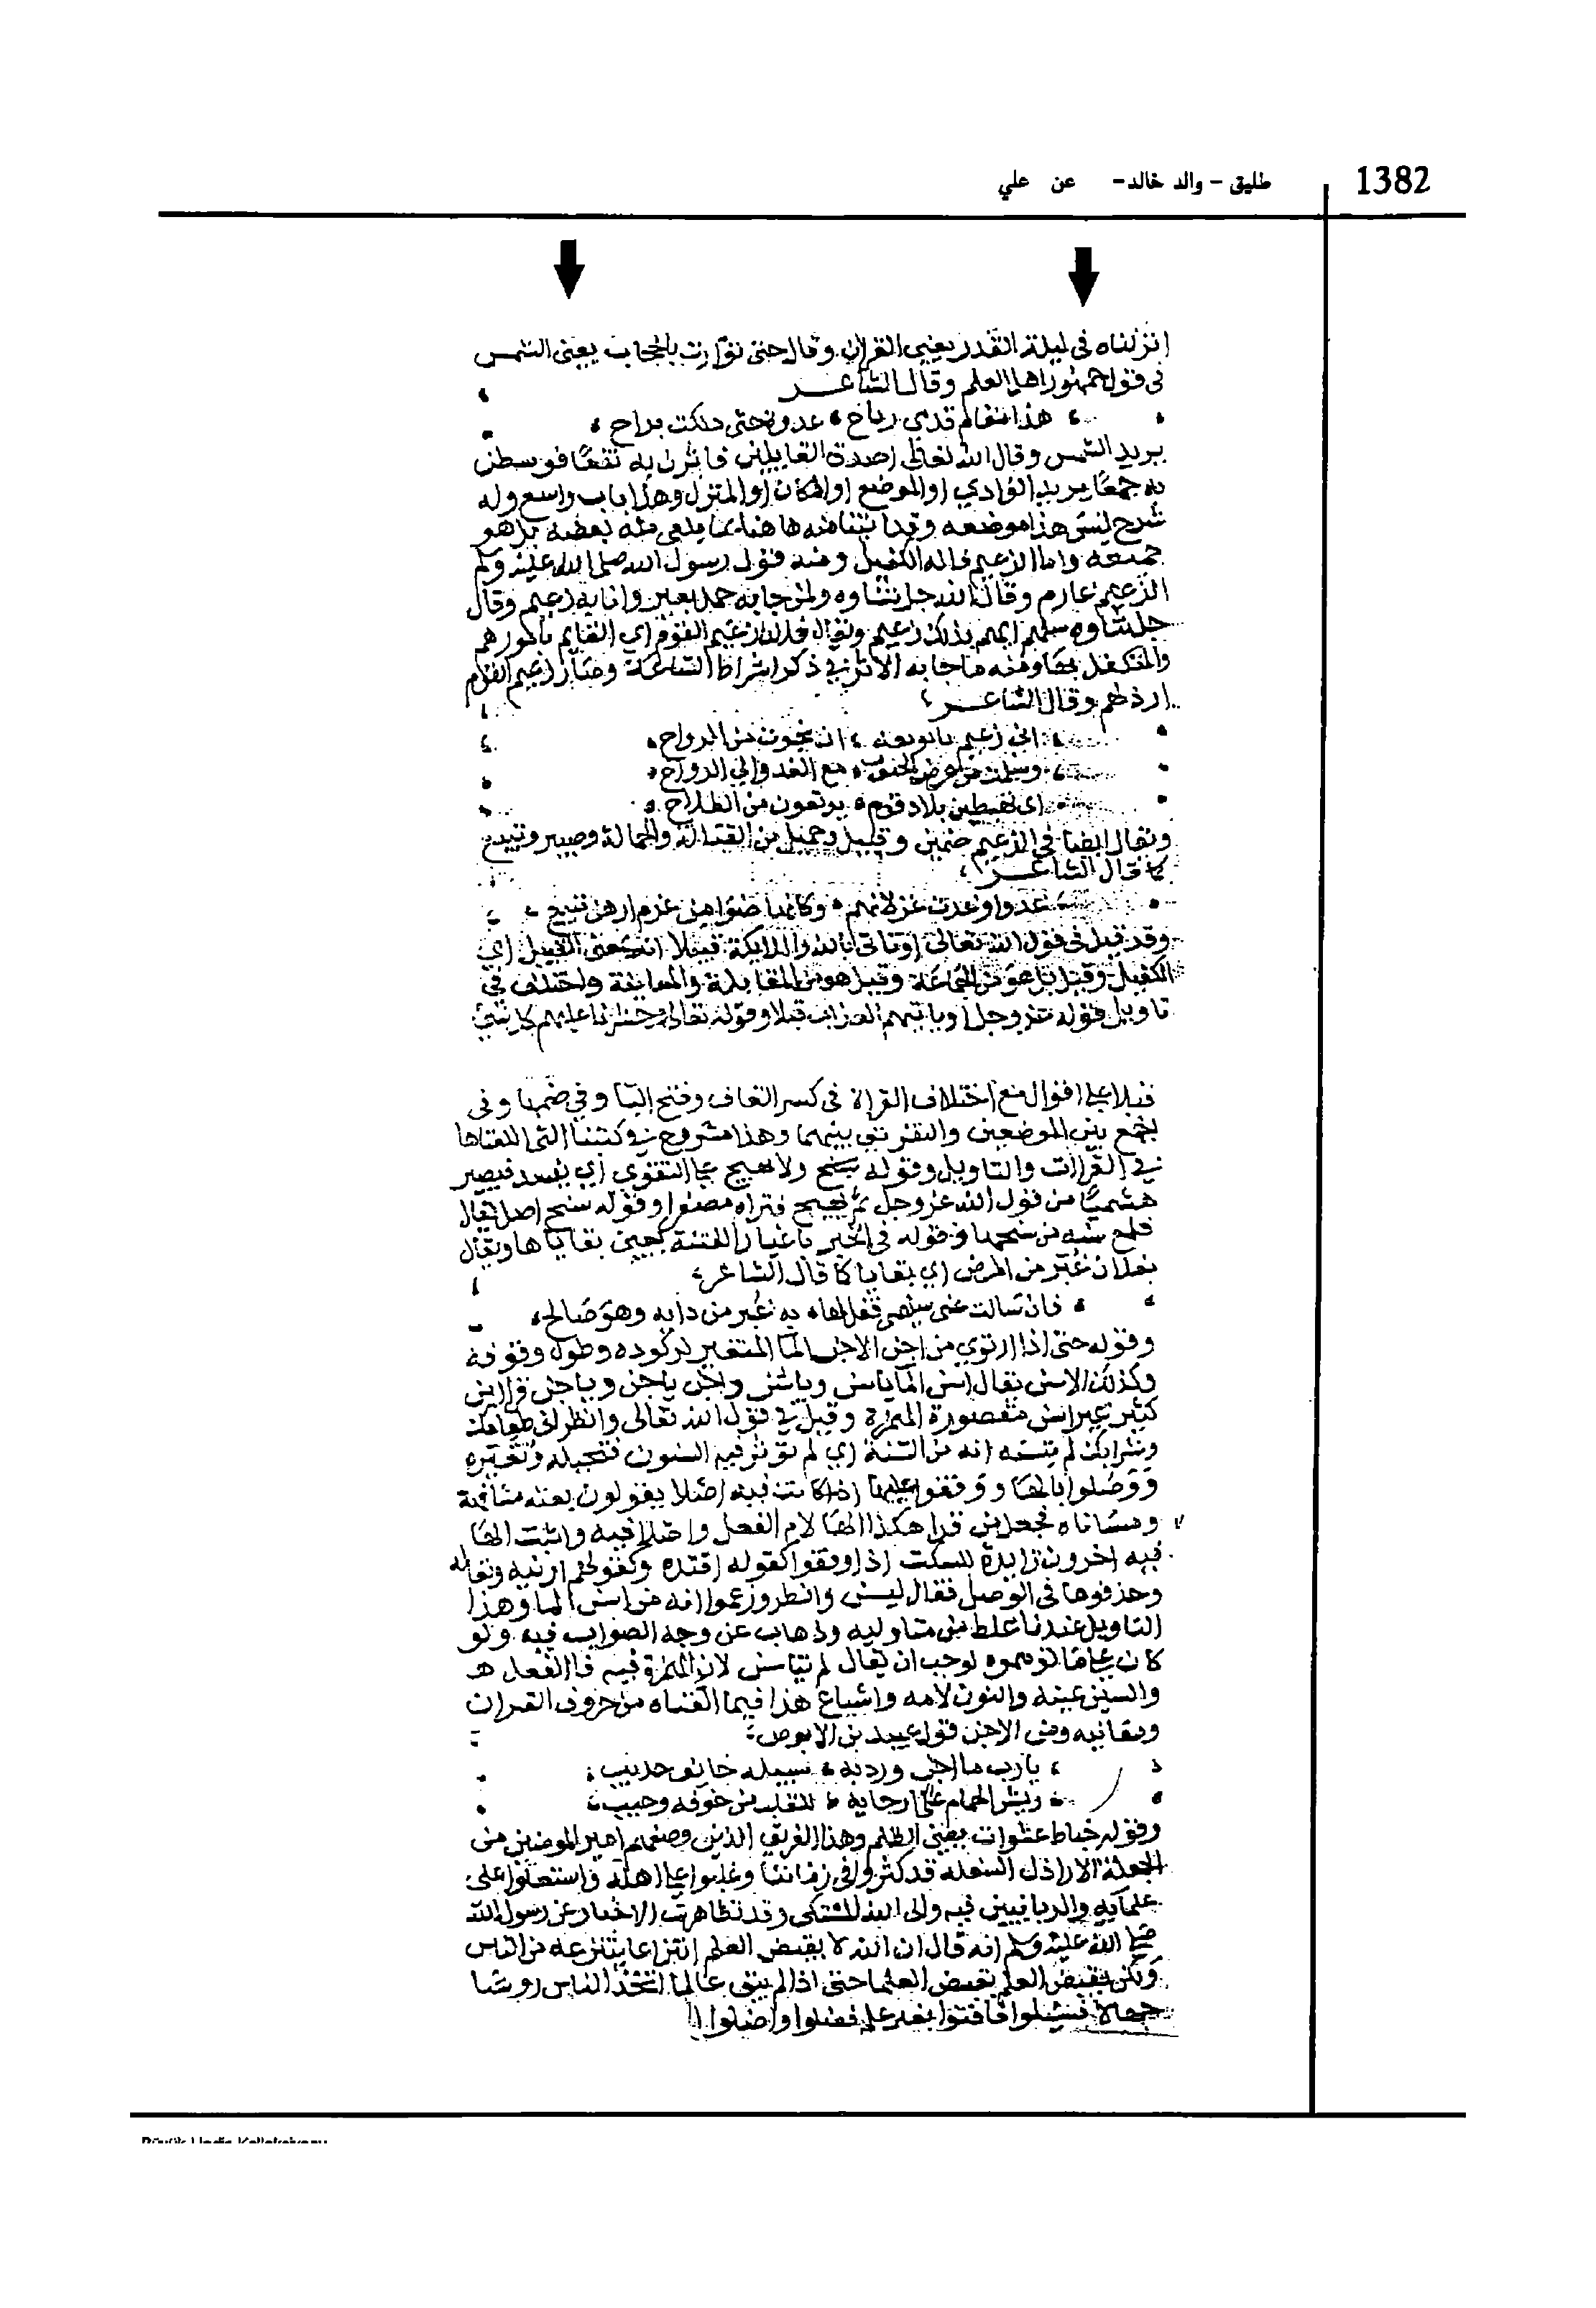 1382
طليق - والد خالد - عن علي
انزلناه في ليلة القدر يعني القران وقال حتى توارت بالحجاب يعني الشمس
في قول جمهور اهل العلم وقال الشاعر
هذا مقام قدمي رباح غدوة حتى دلكت براح
يريد الشمس وقال الله تعالى اصدق القايلين فاثرن به نقعا فوسطن
به جمعا يريد الوادي او الموضع او المكان او المنزل وهذا باب واسع وله
شرح ليس هذا موضعه وقد اتينا منه ها هنا بما يلغي منه بعضه بل هو
جميعه واما الزعيم فانه الكفيل ومنه قول رسول الله صلى الله عليه وسلم
الزعيم غارم وقال الله جل ثناوه ولمن جا به حمل بعير وانا به زعيم وقال
جل ثناوه سلهم ايهم بذلك زعيم ويقال فلان زعيم القوم اي القايم بامورهم
والمتكفل بها ومنه ما جا به الاثر في ذكر اشراط الساعة وصار زعيم القوم
ارذلهم وقال الشاعر
اني زعيم يا نويقة ان نجوت من الرواح
وسلمت من عرض الحتوف مع الغدو الى الرواح
ان تهبطين بلاد قوم يرتعون من الطلاح
ويقال ايضا في الزعيم ضمين وقبيل وحميل من القبالة والحمالة وصبير وتبيع
كما قال الشاعر
غدوا وغدت غزلانهم وكانها ضوامن غرم ... تبيع
وقد قيل في قول الله تعالى او تاتي بالله والملايكة قبيلا انه بمعنى القبيل اي
الكفيل وقيل بل هو من الجماعة وقيل هو من المقابلة والمعاينة واختلف في
تاويل قوله عز وجل او ياتيهم العذاب قبلا وقوله تعالى وحشرنا عليهم كل شي
قبلا على اقوال مع اختلاف القراة في كسر القاف وفتح البا وفي ضمها وفي
الجمع بين الموضعين والتفريق بينهما وهذا مشروح في كتبنا التي الفناها
في القراات والتاويل وقوله سنخ ولا يهيج على التقوى اي يفسد فيصير
هشيما من قول الله عز وجل ثم يهيج فتراه مصفرا وقوله سنخ اصل يقال
قلع سنه من سنخها وقوله في الخبر باغبار الفتنة يعني بقاياها ويقال
بفلان غبر من المرض اي بقايا كما قال الشاعر
فان سالت عني سليمى فقل لها به غبر من دايه وهو صالح
وقوله حتى اذا ارتوى من اجن الاجن الما المتغير لركوده وطول وقوفه
وكذلك الاسن يقال اسن الما ياسن وياسن واجن ياجن وياجن قرا ابن
كثير غير اسن مقصورة الهمزة وقيل في قول الله تعالى وانظر الى طعامك
وشرابك لم يتسنه انه من السنة اي لم توثر فيه السنون فتحيله وتغيره
ووصلوا بالها ووقفوا عليها اذ كانت فيه اصلا يقولون بعته مسانهة
ومساناه فجعل من قرا هكذا الها لام الفعل واصلا فيه واثبت الها
فيه اخرون زايدة للسكت اذا وقفوا كقوله اقتده وكقولهم ارتيه وتعاله
وحذفوها في الوصل فقال ليتسن وانظر وزعموا انه من اسن الما وهذا
التاويل عندنا غلط من متاوليه وذهاب عن وجه الصواب فيه ولو
كان على ما توهموه لوجب ان يقال لم يتاسن لان الهمزة فيه فا الفعل
والسين عينه والنون لامه واشباع هذا فيما الفناه من حروف القران
ومعانيه ومن الاجن قول عبيد بن الابرص
يا رب ما اجن وردته سبيله خايف جديب
ريش الحمام على ارجايه للقلب من خوفه وجيب
وقوله خباط عشوات يعني الظلم وهذا الفريق الذين وصفهم امير المومنين من
الجهلة الاراذل السفلة قد كثروا في زماننا وغلبوا على اهله واستعلوا على
علمايه والربانيين فيه والى الله المشتكى وقد تظاهرت الاخبار عن رسول الله
صلى الله عليه وسلم انه قال ان الله لا يقبض العلم انتزاعا ينتزعه من الناس
ولكن يقبض العلم بقبض العلما حتى اذا لم يبق عالما اتخذ الناس روسا
جهالا فسيلوا فافتوا بغير علم فضلوا واضلوا